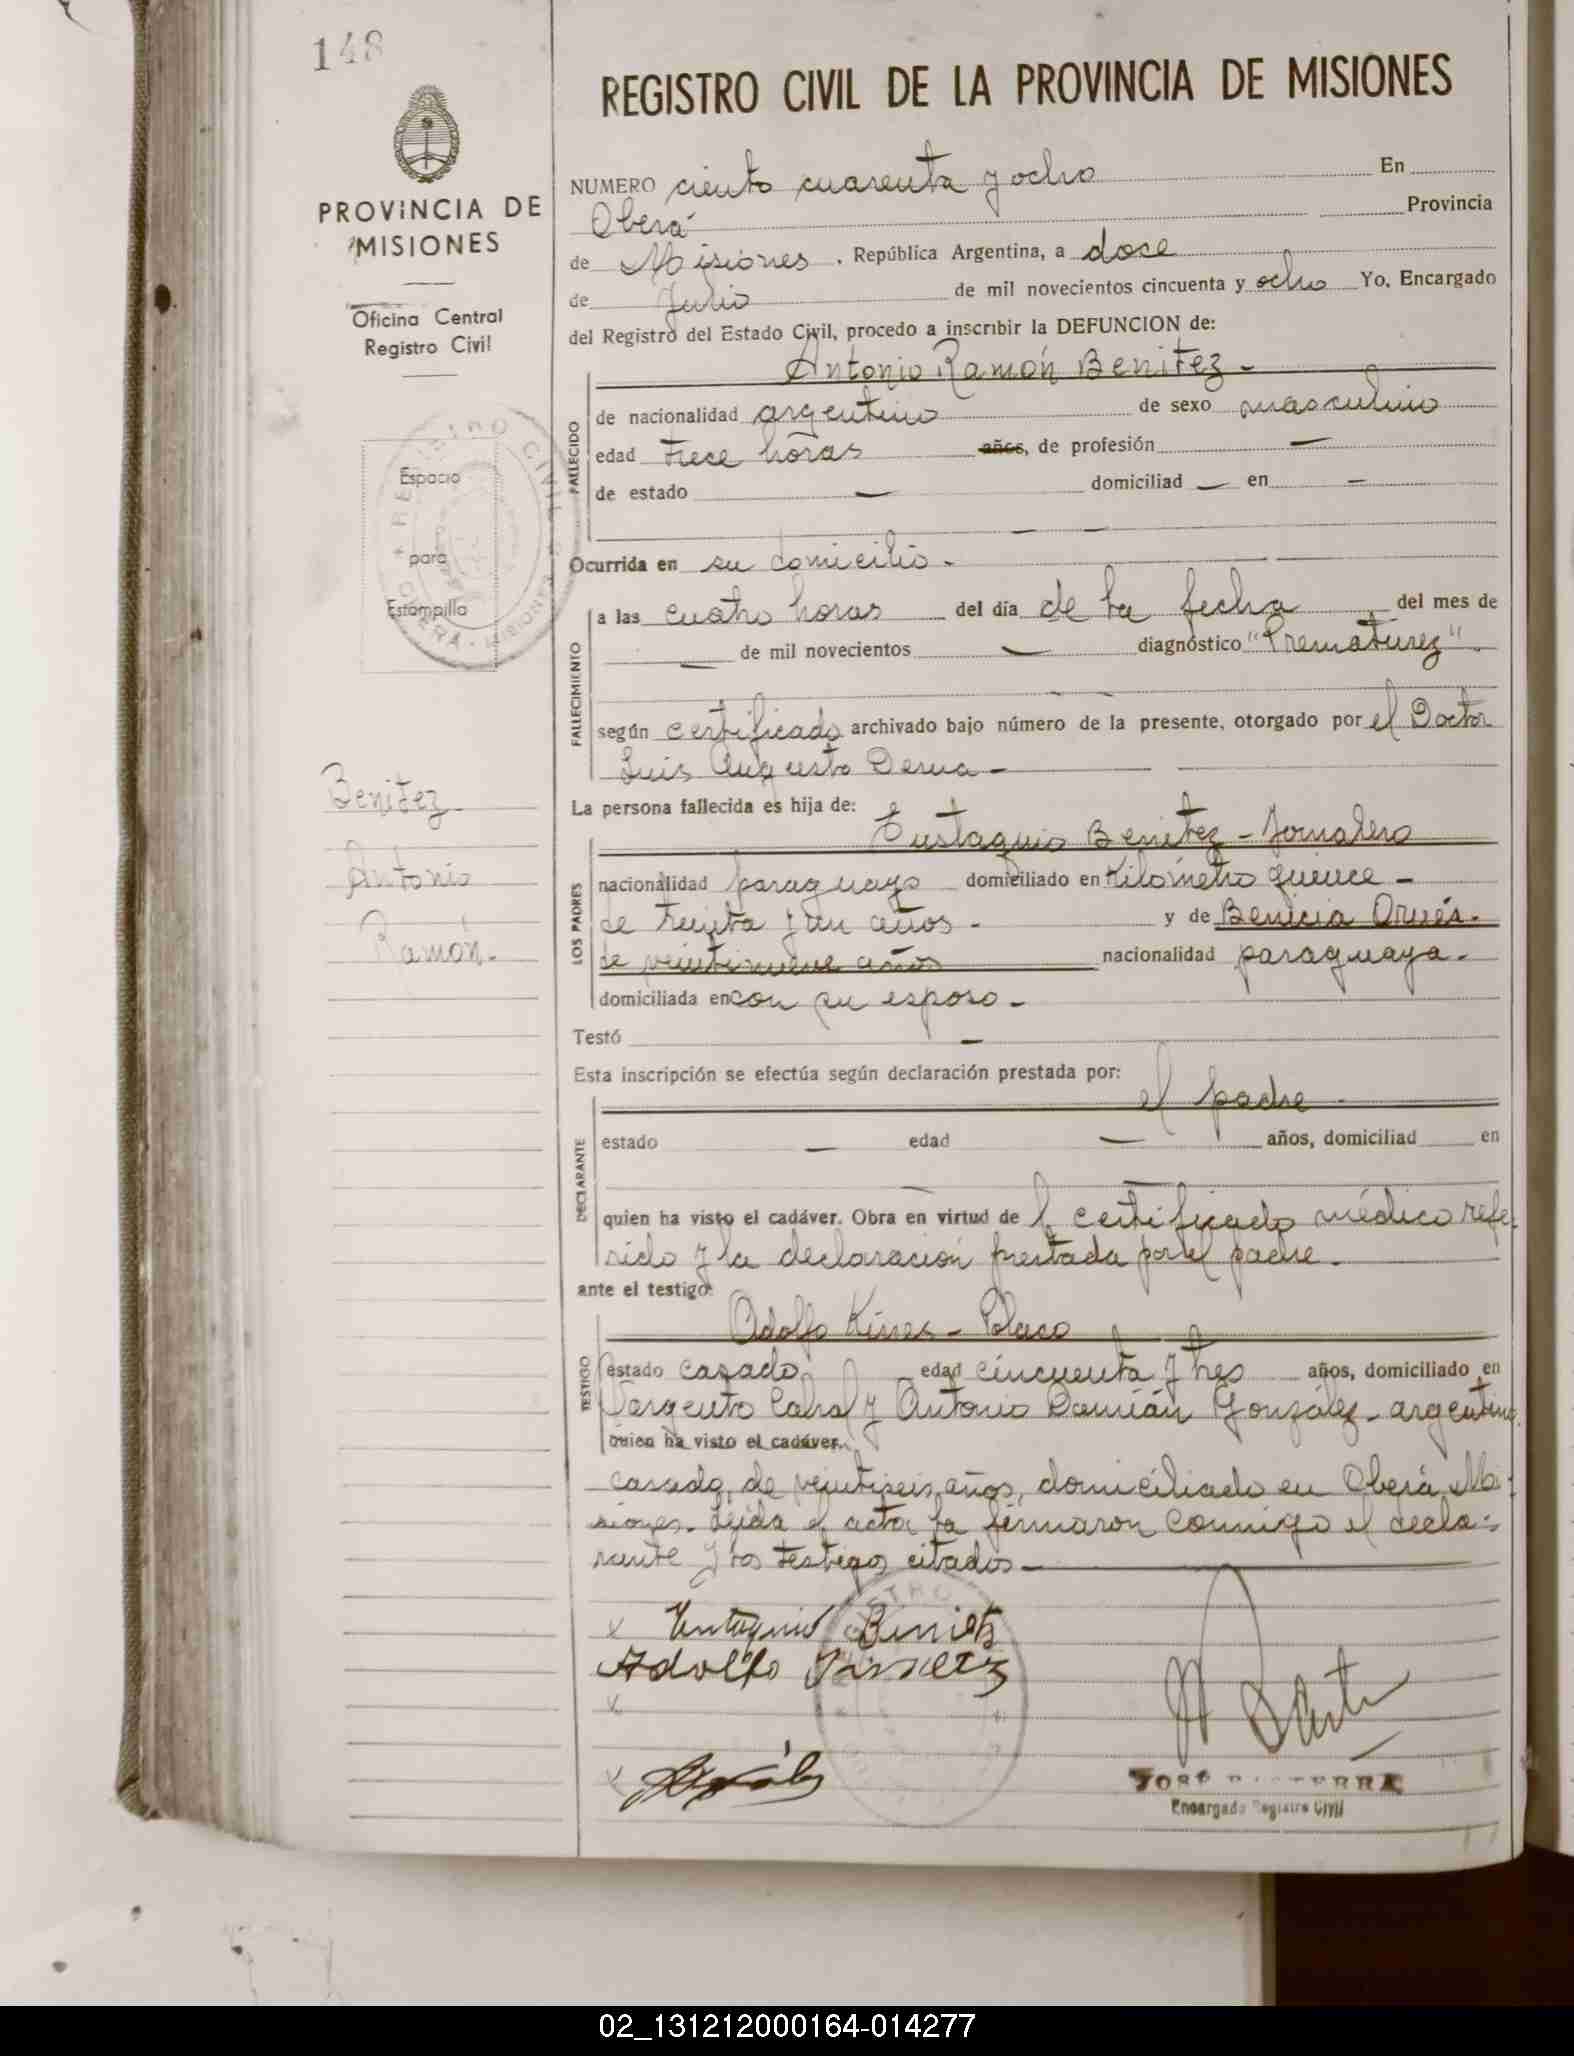 148
REGISTRO CIVIL DE LA PROVINCIA DE MISIONES
PROVINCIA DE
MISIONES
Oficina Central
Registro Civil
Espacio
para
Estampilla
Benitez
Antonio
Ramón.
NUMERO ciento cuarenta y ocho En
Oberá Provincia
de Misiones . República Argentina, a doce
de Julio de mil novecientos cincuenta y ocho Yo, Encargado
del Registro del Estado Civil, procedo a inscribir la DEFUNCION de:
Antonio Ramón Benitez -
FALLECIDO
de nacionalidad argentino de sexo masculino
edad trece horas años, de profesión —
de estado — domiciliad — en —
Ocurrida en su domicilio -
FALLECIMIENTO
a las cuatro horas del día de la fecha del mes de
— de mil novecientos — diagnóstico "Prematurez".
según certificado archivado bajo número de la presente, otorgado por el Doctor
Luis Augusto -
La persona fallecida es hija de:
LOS PADRES
Eustaquio Benitez - Jornalero
nacionalidad paraguayo domiciliado en Kilómetro quince -
de treinta y un años - y de Benicia Orués.
de veintinueve años nacionalidad paraguaya.
domiciliada en con su esposo -
Testó —
Esta inscripción se efectúa según declaración prestada por:
el padre
DECLARANTE
estado — edad — años, domiciliad en
quien ha visto el cadáver. Obra en virtud de l certificado médico refe
rido y la declaración prestada por el padre.
ante el testigo:
TESTIGO
Adolfo - Polaco
estado casado edad cincuenta y tres años, domiciliado en
Sargento Cabral y Antonio Damián González - argentino
quien ha visto el cadáver.
casado, de veintiseis años, domiciliado en Oberá Mi
siones. Leída el acta la firmaron conmigo el decla-
rante y los testigos citados -
Adolfo
Encargado Registro Civil
02_131212000164-014277